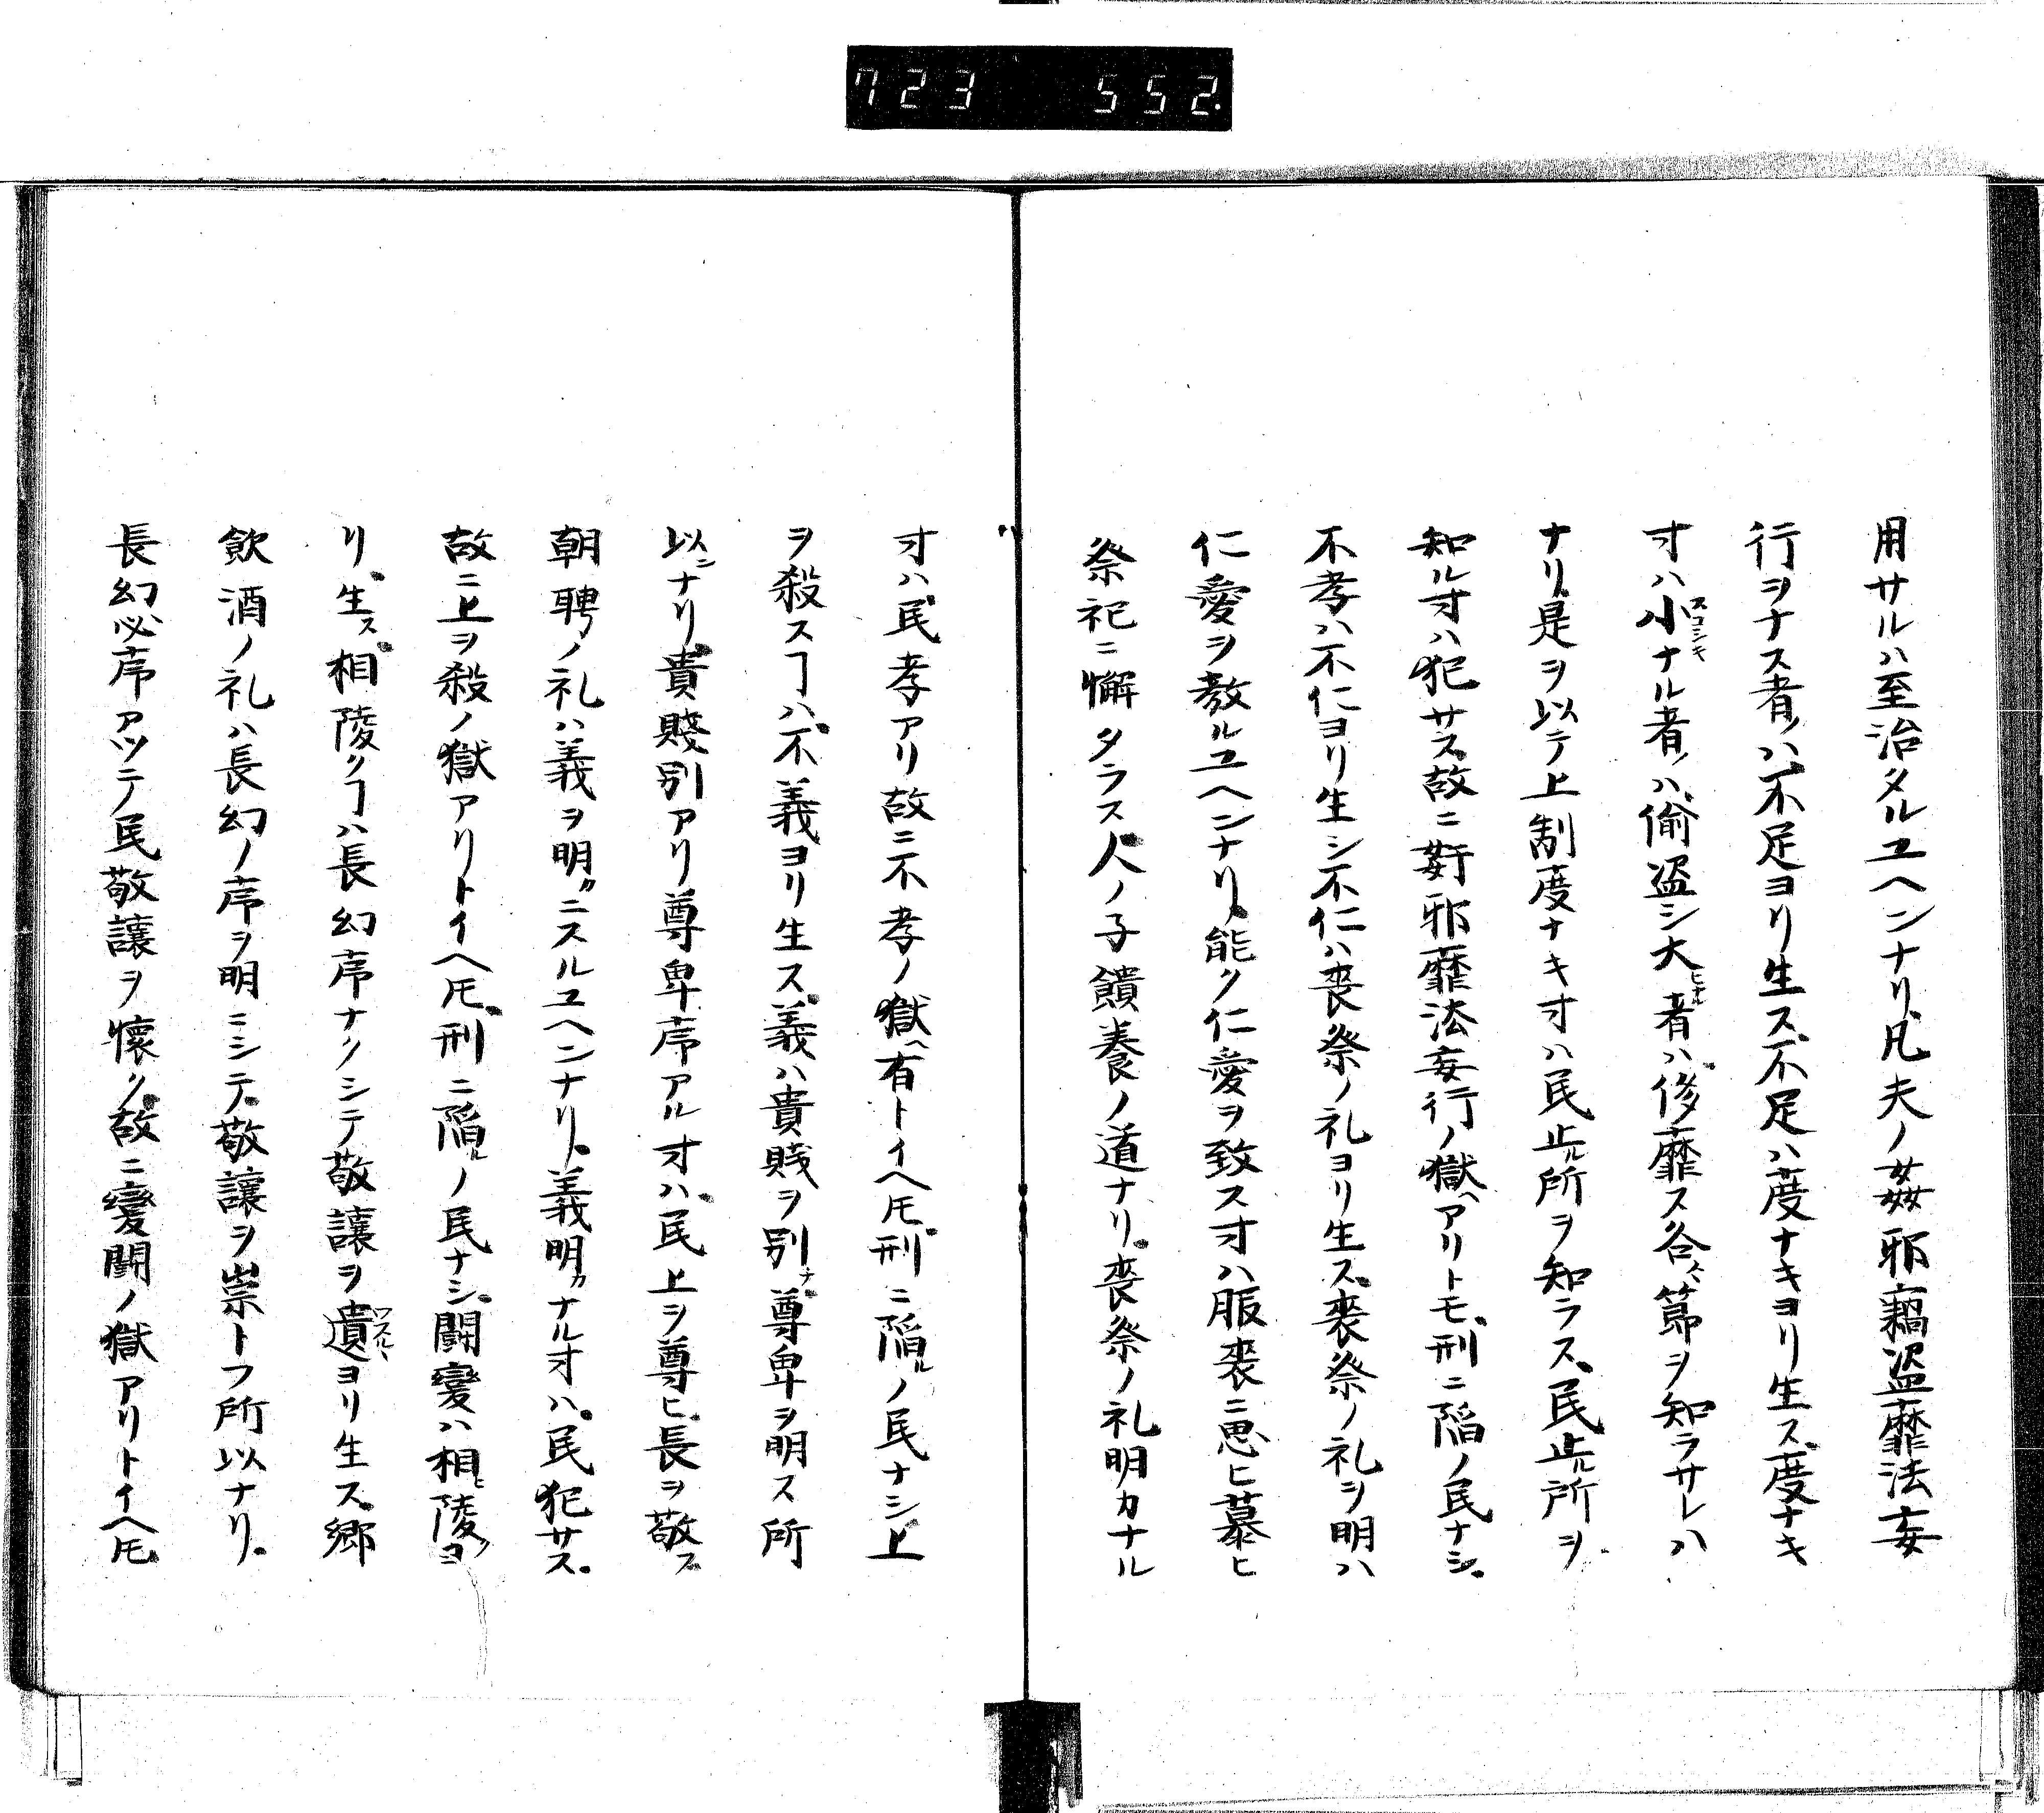 723 552
用サルハ至治タルユヘンナリ、凡夫ノ姦邪竊盗靡法妄
行ヲナス者ハ、不足ヨリ生ス、不足ハ度ナキヨリ生ス、度ナキ
寸ハ小スコシキナル者ハ、偷盗シ大ヒナル者ハ、侈靡ス各〻節ヲ知ラサレハ
ナリ、是ヲ以テ上制度ナキ寸ハ民止ル所ヲ知ラス、民止ル所ヲ
知ル寸ハ犯サス、故ニ姧邪靡法妄行ノ獄アリトモ、刑ニ陷ノ民ナシ、
不孝ハ不仁ヨリ生シ不仁ハ喪祭ノ礼ヨリ生ス、喪祭ノ礼ヲ明ハ
仁愛ヲ教ルユヘンナリ、能ク仁愛ヲ致ス寸ハ服喪ニ思ヒ慕ヒ
祭祀ニ懈タラス人ノ子饋養ノ道ナリ、喪祭ノ礼明カナル
寸ハ民孝アリ故ニ不孝ノ獄有トイヘ𪜈、刑ニ陷ルノ民ナシ上
ヲ殺スヿハ、不義ヨリ生ス、義ハ貴賎ヲ別ナ尊卑ヲ明ス所
以ンナリ、貴賤別アリ尊卑序アル寸ハ、民上ヲ尊ヒ、長ヲ敬ス
朝聘ノ礼ハ義ヲ明カニスルユヘンナリ、義明カナル寸ハ、民犯サス、
故ニ上ヲ殺ノ獄アリトイヘ𪜈、刑ニ陷ルノ民ナシ、鬪變ハ相ヒ陵クヨ
リ、生ス、相陵クヿハ長幻序ナクシテ敬讓ヲ遺ワスルヽヨリ生ス、郷
飲酒ノ礼ハ長幻ノ序ヲ明ニシテ、敬讓ヲ崇トフ所以ナリ、
長幻必序アツテ民敬讓ヲ懷ク、故ニ變鬪ノ獄アリトイヘ𪜈、